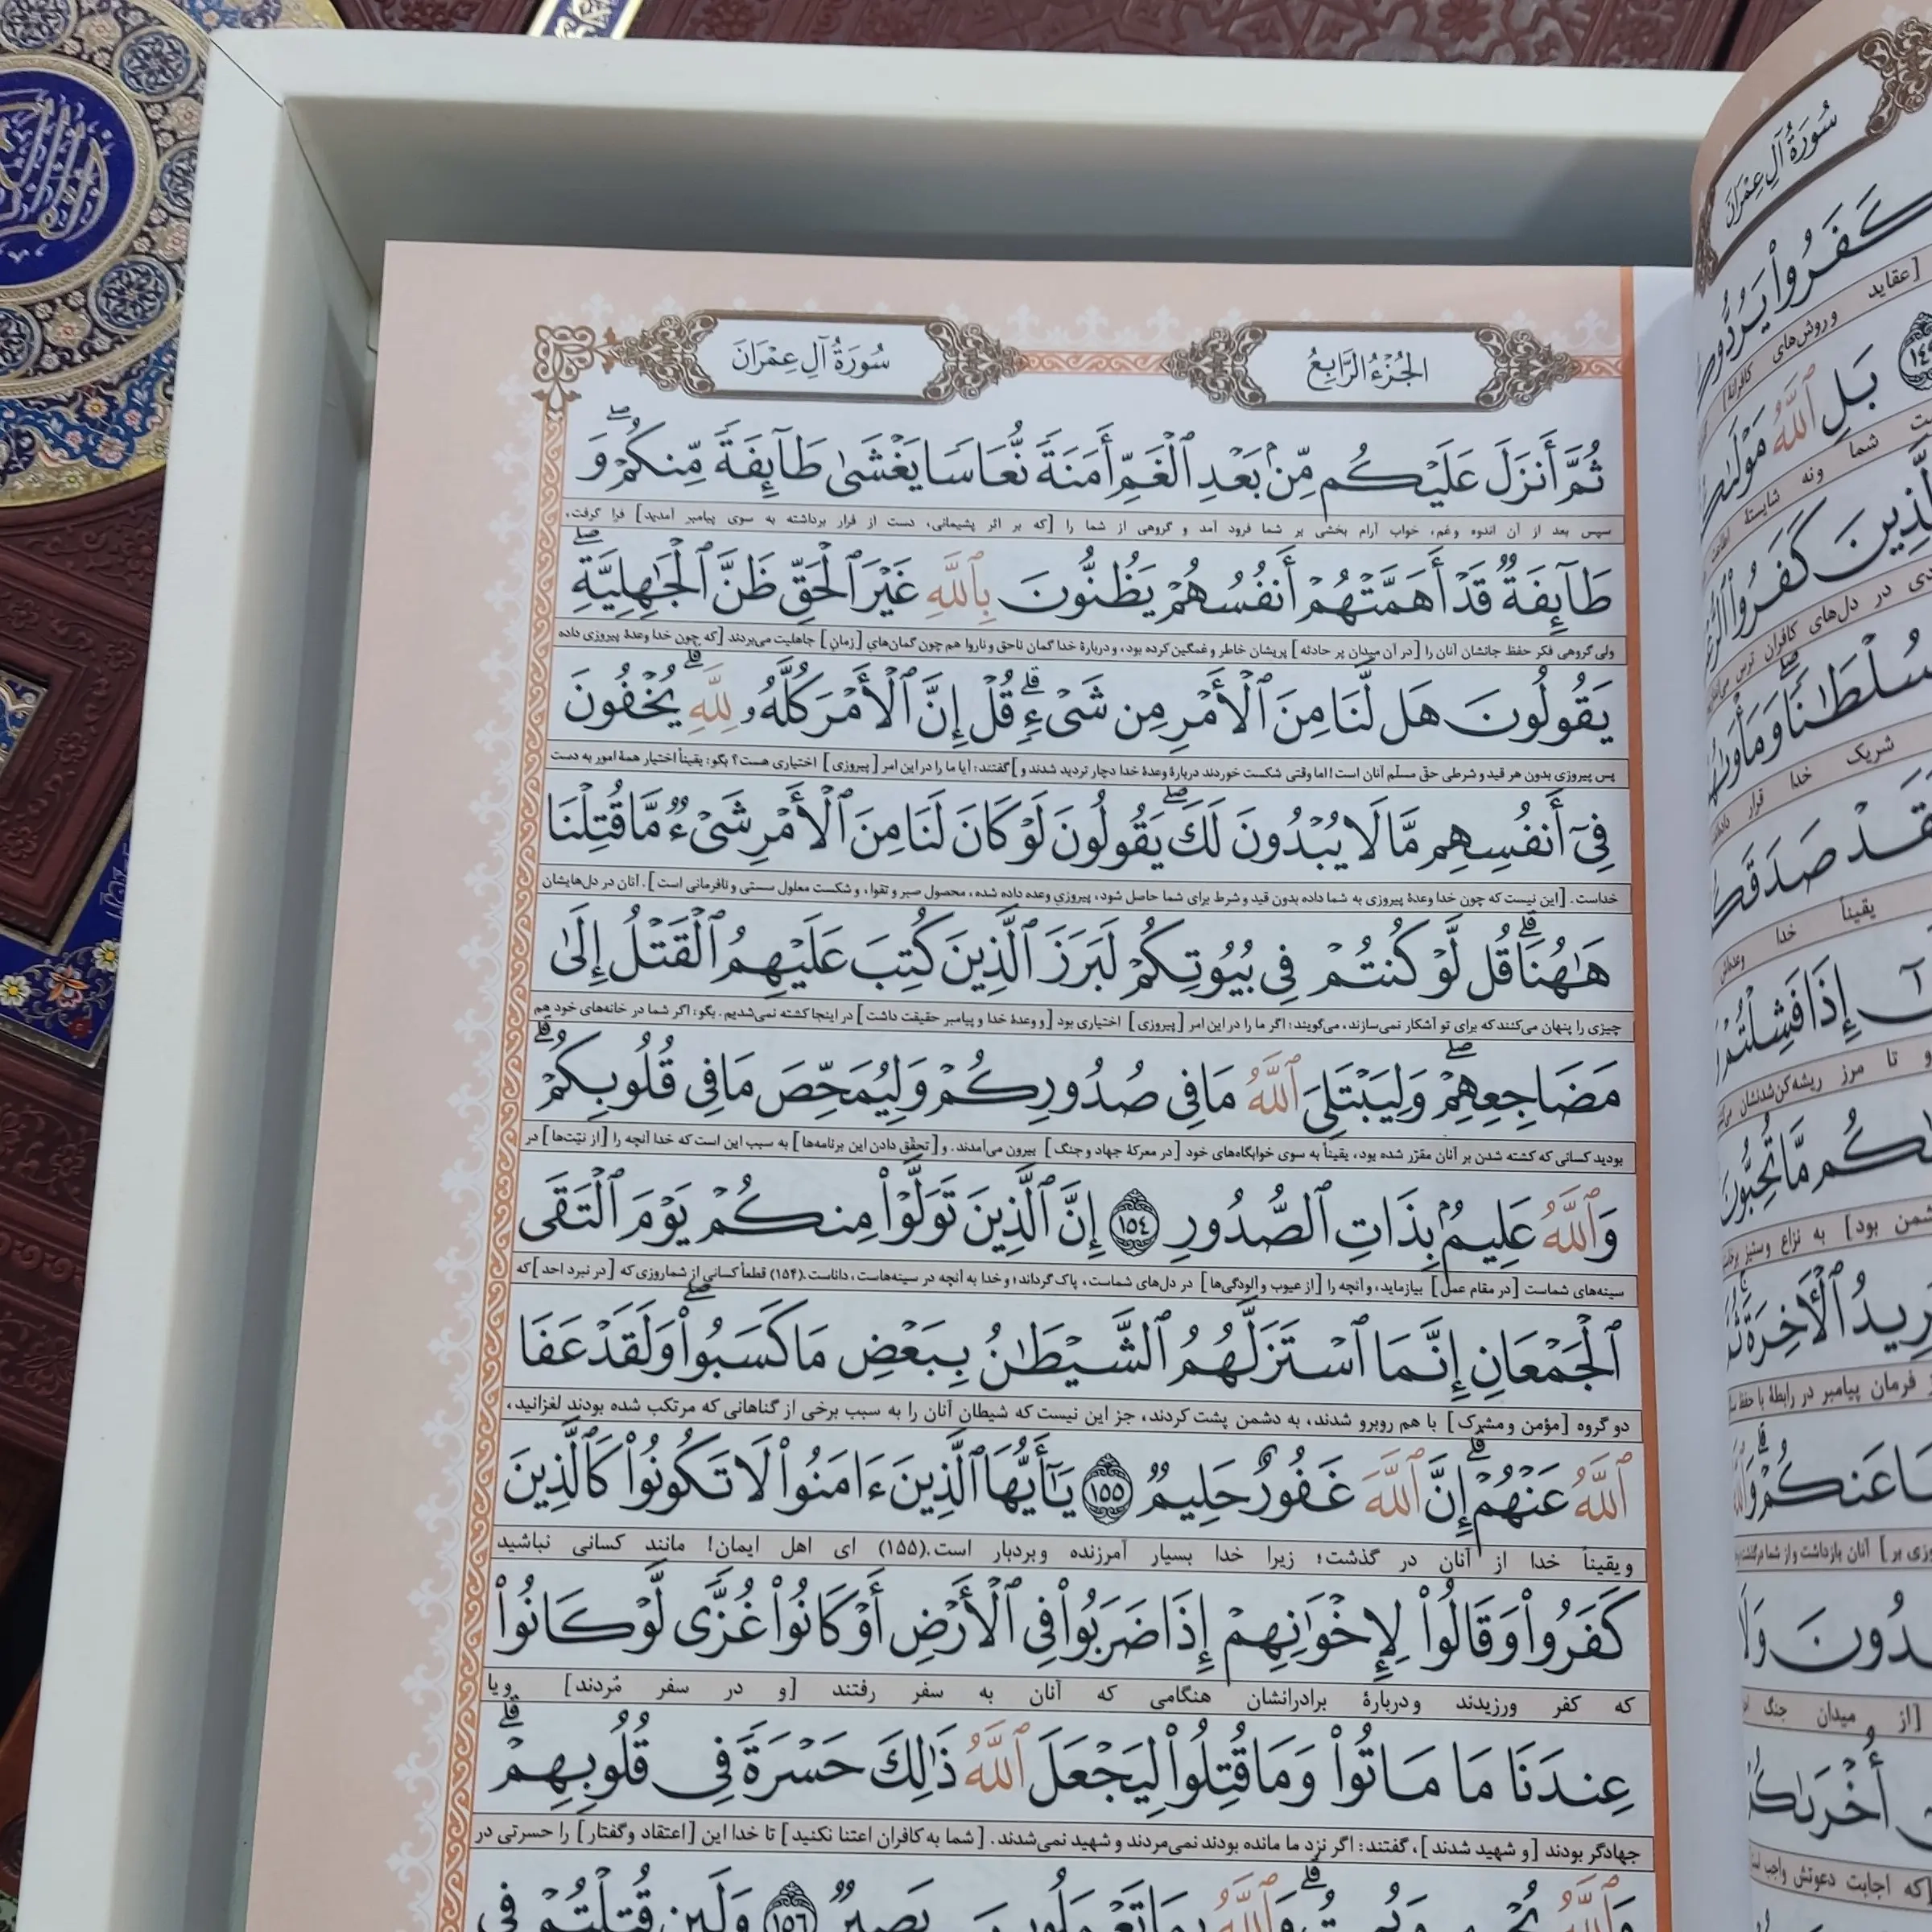 الجُزْءُ الرَّابِعُ
سُورَةُ آلِ عِمْرَانَ
ثُمَّ أَنزَلَ عَلَيْكُم مِّنۢ بَعْدِ ٱلْغَمِّ أَمَنَةً نُّعَاسًا يَغْشَىٰ طَآئِفَةً مِّنكُمْ ۖ وَ
سپس بعد از آن اندوه و غم، خواب آرام بخشی بر شما فرود آمد و گروهی از شما را [که بر اثر پشیمانی، دست از فرار برداشته به سوی پیامبر آمدید] فرا گرفت،
طَآئِفَةٌ قَدْ أَهَمَّتْهُمْ أَنفُسُهُمْ يَظُنُّونَ بِٱللَّهِ غَيْرَ ٱلْحَقِّ ظَنَّ ٱلْجَٰهِلِيَّةِ ۖ
ولی گروهی فکر حفظ جانشان آنان را [در آن میدان پر حادثه] پریشان خاطر و غمگین کرده بود، و دربارهٔ خدا گمان ناحق و ناروا هم چون گمان‌های [زمانِ] جاهلیت می‌بردند [که چون خدا وعدهٔ پیروزی داده
يَقُولُونَ هَل لَّنَا مِنَ ٱلْأَمْرِ مِن شَىْءٍ ۗ قُلْ إِنَّ ٱلْأَمْرَ كُلَّهُۥ لِلَّهِ ۗ يُخْفُونَ
پس پیروزی بدون هر قید و شرطی حقّ مسلّم آنان است! اما وقتی شکست خوردند دربارهٔ وعدهٔ خدا دچار تردید شدند و] گفتند: آیا ما را در این امر [پیروزی] اختیاری هست؟ بگو: یقیناً اختیار همهٔ امور به دست
فِىٓ أَنفُسِهِم مَّا لَا يُبْدُونَ لَكَ ۖ يَقُولُونَ لَوْ كَانَ لَنَا مِنَ ٱلْأَمْرِ شَىْءٌ مَّا قُتِلْنَا
خداست. [این نیست که چون خدا وعدهٔ پیروزی به شما داده بدون قید و شرط برای شما حاصل شود، پیروزیِ وعده داده شده، محصول صبر و تقوا، و شکست معلول سستی و نافرمانی است]. آنان در دل‌هایشان
هَٰهُنَا ۗ قُل لَّوْ كُنتُمْ فِى بُيُوتِكُمْ لَبَرَزَ ٱلَّذِينَ كُتِبَ عَلَيْهِمُ ٱلْقَتْلُ إِلَىٰ
چیزی را پنهان می‌کنند که برای تو آشکار نمی‌سازند، می‌گویند: اگر ما را در این امر [پیروزی] اختیاری بود [و وعدهٔ خدا و پیامبر حقیقت داشت] در اینجا کشته نمی‌شدیم. بگو: اگر شما در خانه‌های خود هم
مَضَاجِعِهِمْ ۖ وَلِيَبْتَلِىَ ٱللَّهُ مَا فِى صُدُورِكُمْ وَلِيُمَحِّصَ مَا فِى قُلُوبِكُمْ ۗ
بودید کسانی که کشته شدن بر آنان مقرّر شده بود، یقیناً به سوی خوابگاه‌های خود [در معرکهٔ جهاد و جنگ] بیرون می‌آمدند. و [تحقّق دادن این برنامه‌ها] به سبب این است که خدا آنچه را [از نیّت‌ها] در
وَٱللَّهُ عَلِيمٌۢ بِذَاتِ ٱلصُّدُورِ ١٥٤ إِنَّ ٱلَّذِينَ تَوَلَّوْا۟ مِنكُمْ يَوْمَ ٱلْتَقَى
سینه‌های شماست [در مقام عمل] بیازماید، و آنچه را [از عیوب و آلودگی‌ها] در دل‌های شماست، پاک گرداند؛ و خدا به آنچه در سینه‌هاست، داناست.(۱۵۴) قطعاً کسانی از شما روزی که [در نبرد احد] که
ٱلْجَمْعَانِ إِنَّمَا ٱسْتَزَلَّهُمُ ٱلشَّيْطَٰنُ بِبَعْضِ مَا كَسَبُوا۟ ۖ وَلَقَدْ عَفَا
دو گروه [مؤمن و مشرک] با هم روبرو شدند، به دشمن پشت کردند، جز این نیست که شیطان آنان را به سبب برخی از گناهانی که مرتکب شده بودند لغزانید،
ٱللَّهُ عَنْهُمْ ۗ إِنَّ ٱللَّهَ غَفُورٌ حَلِيمٌ ١٥٥ يَٰٓأَيُّهَا ٱلَّذِينَ ءَامَنُوا۟ لَا تَكُونُوا۟ كَٱلَّذِينَ
و یقیناً خدا از آنان در گذشت؛ زیرا خدا بسیار آمرزنده و بردبار است.(۱۵۵) ای اهل ایمان! مانند کسانی نباشید
كَفَرُوا۟ وَقَالُوا۟ لِإِخْوَٰنِهِمْ إِذَا ضَرَبُوا۟ فِى ٱلْأَرْضِ أَوْ كَانُوا۟ غُزًّى لَّوْ كَانُوا۟
که کفر ورزیدند و دربارهٔ برادرانشان هنگامی که آنان به سفر رفتند [و در سفر مُردند] و یا
عِندَنَا مَا مَاتُوا۟ وَمَا قُتِلُوا۟ لِيَجْعَلَ ٱللَّهُ ذَٰلِكَ حَسْرَةً فِى قُلُوبِهِمْ ۗ
جهادگر بودند [و شهید شدند]، گفتند: اگر نزد ما مانده بودند نمی‌مردند و شهید نمی‌شدند. [شما به کافران اعتنا نکنید] تا خدا این [اعتقاد و گفتار] را حسرتی در
وَٱللَّهُ يُحْىِۦ وَيُمِيتُ ۗ وَٱللَّهُ بِمَا تَعْمَلُونَ بَصِيرٌ ١٥٦ وَلَئِن قُتِلْتُمْ فِى
سُورَةُ آلِ عِمْرَانَ
كَفَرُوا۟ يَرُدُّوكُمْ
[عقاید و روش‌های کافرانهٔ]
بَلِ ٱللَّهُ مَوْلَىٰكُمْ
شما و نه شایستهٔ
كَفَرُوا۟
در دل‌های کافران ترس
سُلْطَٰنًا ۖ وَمَأْوَىٰهُمُ
شریک خدا قرار
صَدَقَكُمُ
یقیناً خدا
إِذَا فَشِلْتُمْ
و تا مرز ریشه‌کن‌شدنشان
مَّا تُحِبُّونَ
بود] به نزاع و ستیز
ٱلْأَخِرَةَ
فرمان پیامبر در رابطهٔ با حفظ
عَنكُمْ
آنان بازداشت و از شما درگذشت
وَلَا
[از میدان جنگ
أُخْرَىٰكُمْ
[که اجابت دعوتش واجب